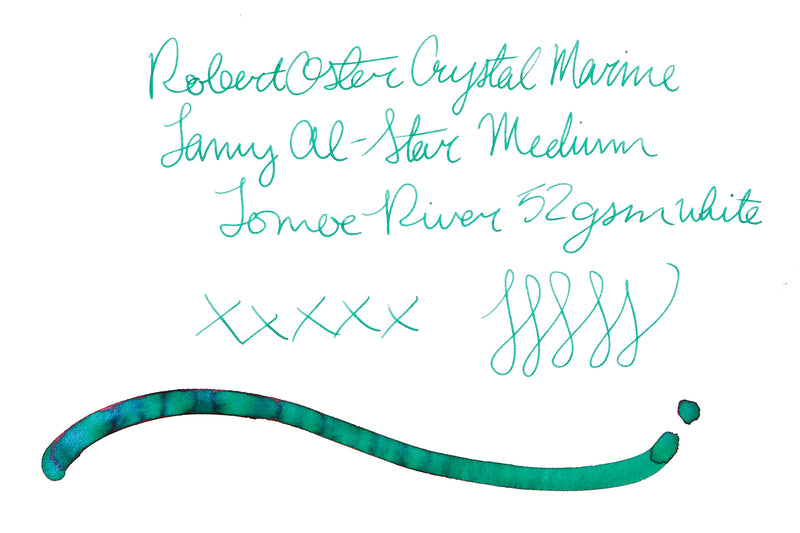 Robert Oster Crystal Marine
Lamy Al-Star Medium
Tomoe River 52gsm white
xxxxx